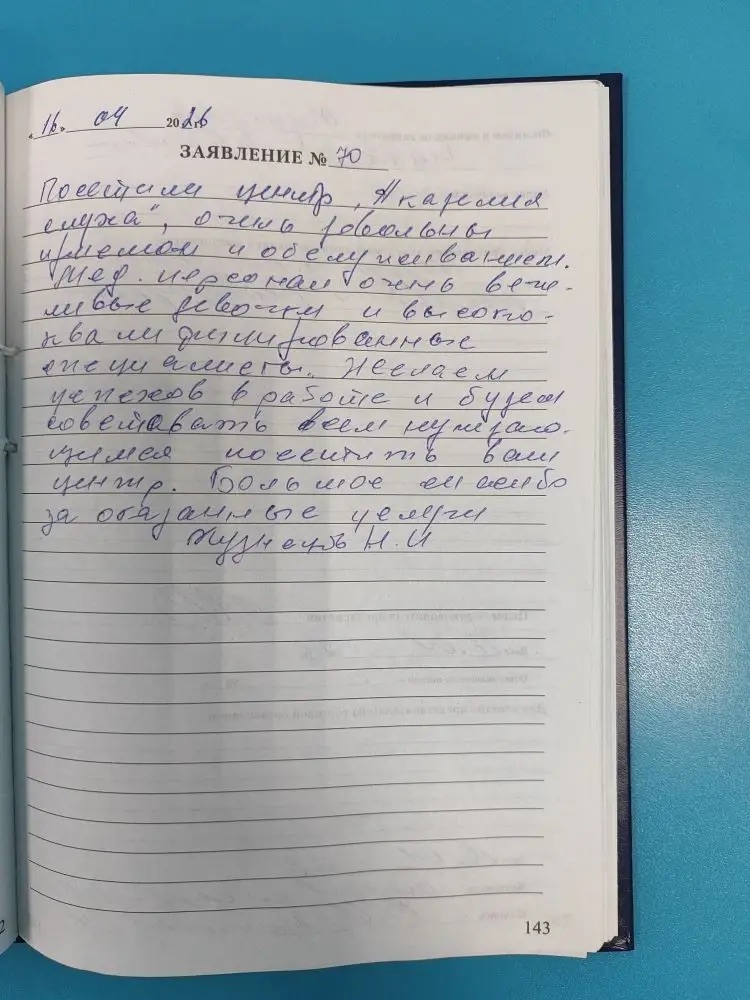 «16» 04 2026 г.
ЗАЯВЛЕНИЕ № 70
Посетили центр „Академия
слуха“, очень довольны
приемом и обслуживанием.
Мед. персонал очень веж-
ливые девочки и высоко-
квалифицированные
специалисты. Желаем
успехов в работе и будем
советовать всем нуждаю-
щимся посетить ваш
центр. Большое спасибо
за оказанные услуги
Н.И
143